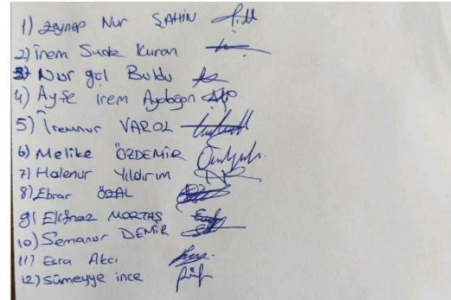 1) Zeynep Nur ŞAHİN
2) İrem Sude Kuran
3) Nur gül Buldu
4) Ayşe irem Aydoğan
5) İremnur VAROL
6) Melike ÖZDEMİR
7) Halenur Yıldırım
8) Ebrar ÖZAL
9) Elifnaz MORTAŞ
10) Semanur DEMİR
11) Esra Akcı
12) Sümeyye ince